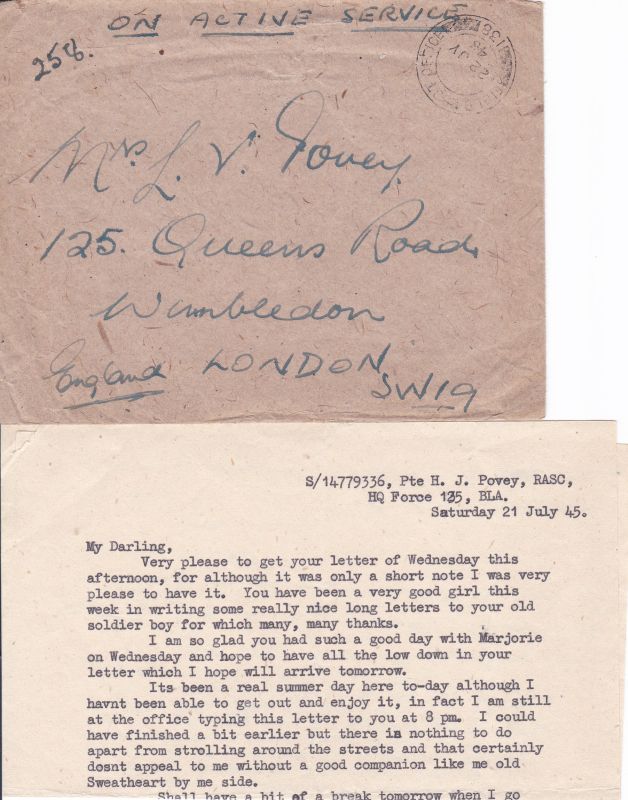 ON ACTIVE SERVICE
258.
FIELD POST OFFICE
22 JY
45
Mrs L. V. Povey
125. Queens Road
Wimbledon
England LONDON
SW19
S/14779336, Pte H. J. Povey, RASC,
HQ Force 135, BLA.
Saturday 21 July 45.
My Darling,
Very please to get your letter of Wednesday this
afternoon, for although it was only a short note I was very
please to have it. You have been a very good girl this
week in writing some really nice long letters to your old
soldier boy for which many, many thanks.
I am so glad you had such a good day with Marjorie
on Wednesday and hope to have all the low down in your
letter which I hope will arrive tomorrow.
Its been a real summer day here to-day although I
havnt been able to get out and enjoy it, in fact I am still
at the office typing this letter to you at 8 pm. I could
have finished a bit earlier but there is nothing to do
apart from strolling around the streets and that certainly
dosnt appeal to me without a good companion like me old
Sweatheart by me side.
Shall have a bit of a break tomorrow when I go